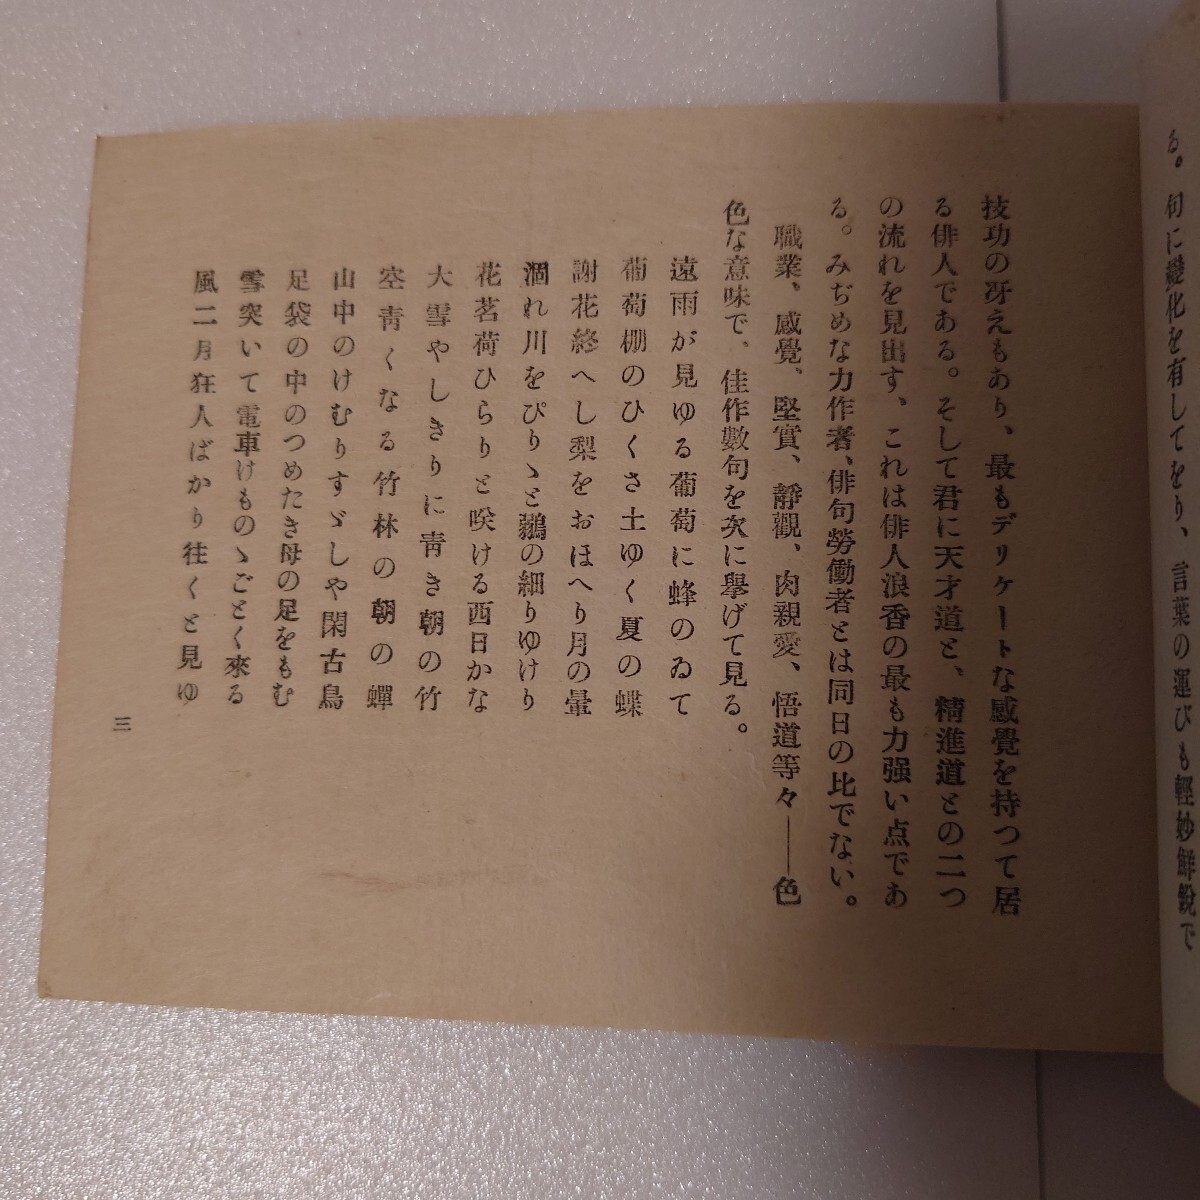 る。句に變化を有してをり、言葉の運びも輕妙鮮銳で
技功の冴えもあり、最もデリケートな感覺を持つて居
る俳人である。そして君に天才道と、精進道との二つ
の流れを見出す、これは俳人浪香の最も力强い点であ
る。みぢめな力作者、俳句勞働者とは同日の比でない。
職業、感覺、堅實、靜觀、肉親愛、悟道等々――色
色な意味で、佳作數句を次に擧げて見る。
遠雨が見ゆる葡萄に蜂のゐて
葡萄棚のひくさ土ゆく夏の蝶
謝花終へし梨をおほへり月の暈
涸れ川をぴりゝと鶺の細りゆけり
花茗荷ひらりと咲ける西日かな
大雪やしきりに靑き朝の竹
空靑くなる竹林の朝の蟬
山中のけむりすゞしや閑古鳥
足袋の中のつめたき母の足をもむ
雪突いて電車けものゝごとく來る
風二月狂人ばかり往くと見ゆ
三